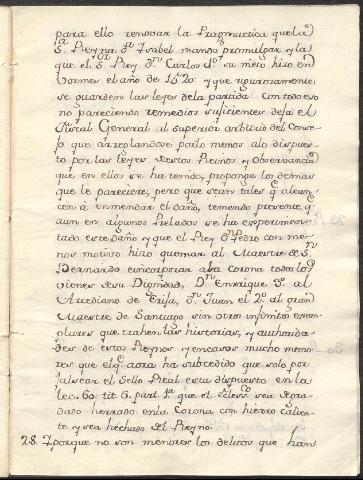 para ello renovar la Pragmatica que la
S.ra Reyna D.ª Isabel mandó promulgar y la
que el S.r Rey D.n Carlos 1.º su nieto hizo en
Bormes el año de 1520. y que rigurosamente
se guarden las leyes de la partida. Con todo eso
no pareciendo remedios suficientes deja el
Fiscal General al superior arbitrio del Conse-
jo que arreglandose por lo menos a lo dispues-
to por las leyes de estos Reinos y observancia
que en ellos se ha tenido, proponga lo demas
que le pareciere, pero que sean tales q.e alcan-
cen á enmendar el daño, teniendo presente, q.e
aun en algunos Prelados se ha experimen-
tado este daño y que el Rey D.n Pedro con me-
nos motivo hizo quemar al Maestre de S.n
Bernardo e incorporar a la Corona todos los
vienes de su Dignidad, D.n Enrique 3.º al
Arcediano de Ecija, D.n Juan el 2.º al gran
Maestre de Santiago sin otros infinitos exem-
plares que trahen las historias, y authorida-
des de estos Reynos y en casos mucho meno-
res que el q.e aora ha subcedido que solo por
falsear el Sello Real esta dispuesto en la
ley. 60. tit. 6. part. 1.ª que el Clerigo sea degra-
dado herrado en la Corona con hierro calien-
te y sea hechado del Reyno.
28. Y porque no son menores los delitos que han